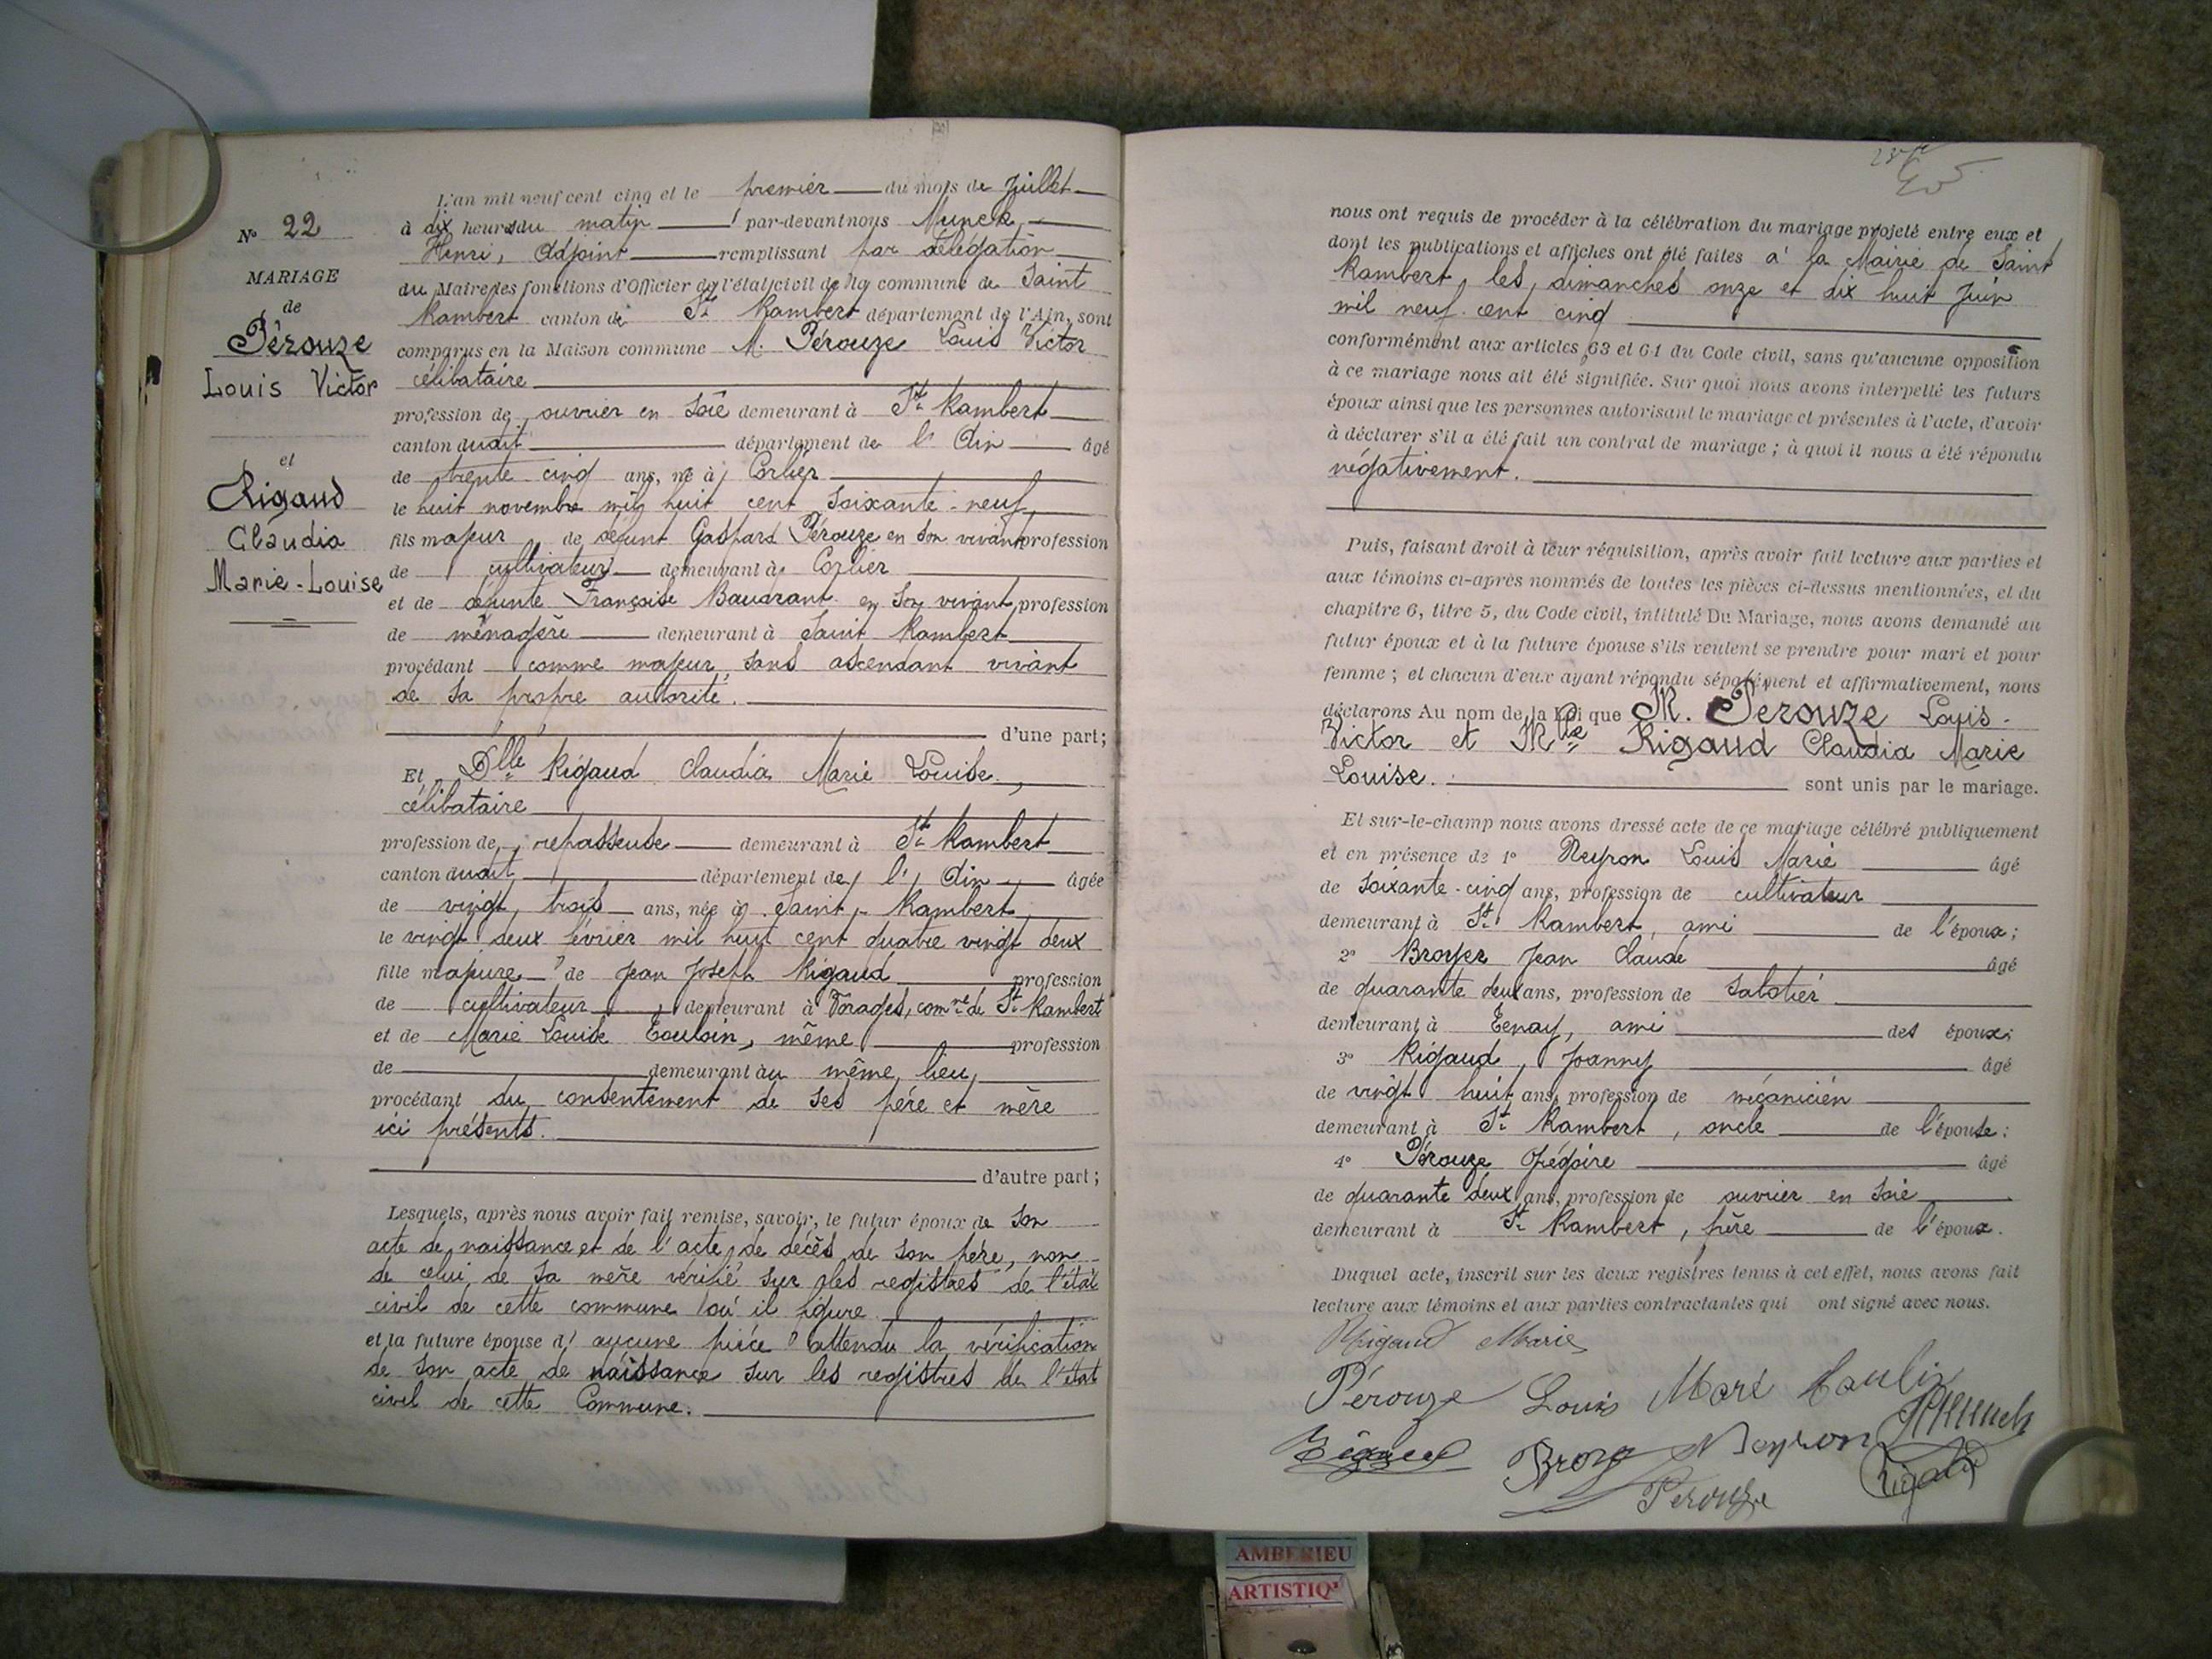 L'an mil neuf cent cinq et le premier du mois de Juillet
à dix heures du matin par-devant nous Munck
Henri, Adjoint remplissant par délégation
du Maire les fonctions d'Officier de l'état civil de la commune de Saint
Rambert canton de St Rambert département de l'Ain, sont
comparus en la Maison commune M. Pérouze Louis Victor
célibataire
profession de ouvrier en soie demeurant à St Rambert
canton dudit département de l'Ain âgé
de trente cinq ans, né à Corlier
le huit novembre mil huit cent soixante-neuf
fils majeur de défunt Gaspard Pérouze en son vivant profession
de cultivateur demeurant à Corlier
et de défunte Françoise Baudrant en son vivant, profession
de ménagère demeurant à Saint Rambert
procédant comme majeur, sans ascendant vivant
de sa propre autorité.
d'une part;
Et Dlle Rigaud Claudia Marie Louise,
célibataire
profession de repasseuse demeurant à St Rambert
canton dudit département de l'Ain âgée
de vingt trois ans, née à Saint-Rambert
le vingt deux février mil huit cent quatre vingt deux
fille majeure de Jean Joseph Rigaud profession
de cultivateur demeurant à Vorages, comne de St Rambert
et de Marie Louise Touloin, même profession
de demeurant au même lieu,
procédant du consentement de ses père et mère
ici présents.
d'autre part;
Lesquels, après nous avoir fait remise, savoir, le futur époux de son
acte de naissance et de l'acte de décès de son père, non
de celui de sa mère vérifié sur les registres de l'état
civil de cette commune où il figure
et la future épouse d'aucune pièce attendu la vérification
de son acte de naissance sur les registres de l'état
civil de cette Commune.
No 22
MARIAGE
de
Pérouze
Louis Victor
et
Rigaud
Claudia
Marie-Louise
nous ont requis de procéder à la célébration du mariage projeté entre eux et
dont les publications et affiches ont été faites à la Mairie de Saint
Rambert, les dimanches onze et dix huit Juin
mil neuf cent cinq
conformément aux articles 63 et 64 du Code civil, sans qu'aucune opposition
à ce mariage nous ait été signifiée. Sur quoi nous avons interpellé les futurs
époux ainsi que les personnes autorisant le mariage et présentes à l'acte, d'avoir
à déclarer s'il a été fait un contrat de mariage; à quoi il nous a été répondu
négativement.
Puis, faisant droit à leur réquisition, après avoir fait lecture aux parties et
aux témoins ci-après nommés de toutes les pièces ci-dessus mentionnées, et du
chapitre 6, titre 5, du Code civil, intitulé Du Mariage, nous avons demandé au
futur époux et à la future épouse s'ils veulent se prendre pour mari et pour
femme; et chacun d'eux ayant répondu séparément et affirmativement, nous
déclarons Au nom de la Loi que M. Pérouze Louis-
Victor et Mlle Rigaud Claudia Marie
Louise. sont unis par le mariage.
Et sur-le-champ nous avons dressé acte de ce mariage célébré publiquement
et en présence de 1o Neyron Louis Marie âgé
de soixante-cinq ans, profession de cultivateur
demeurant à St Rambert, ami de l'époux;
2o Broyer Jean Claude âgé
de quarante deux ans, profession de sabotier
demeurant à Tenay, ami des époux;
3o Rigaud, Joanny âgé
de vingt huit ans, profession de mécanicien
demeurant à St Rambert, oncle de l'épouse;
4o Pérouze Grégoire âgé
de quarante deux ans, profession de ouvrier en soie
demeurant à St Rambert, frère de l'époux.
Duquel acte, inscrit sur les deux registres tenus à cet effet, nous avons fait
lecture aux témoins et aux parties contractantes qui ont signé avec nous.
Rigaud Marie
Pérouze Louis
Neyron
Perouze
AMBERIEU
ARTISTIQ